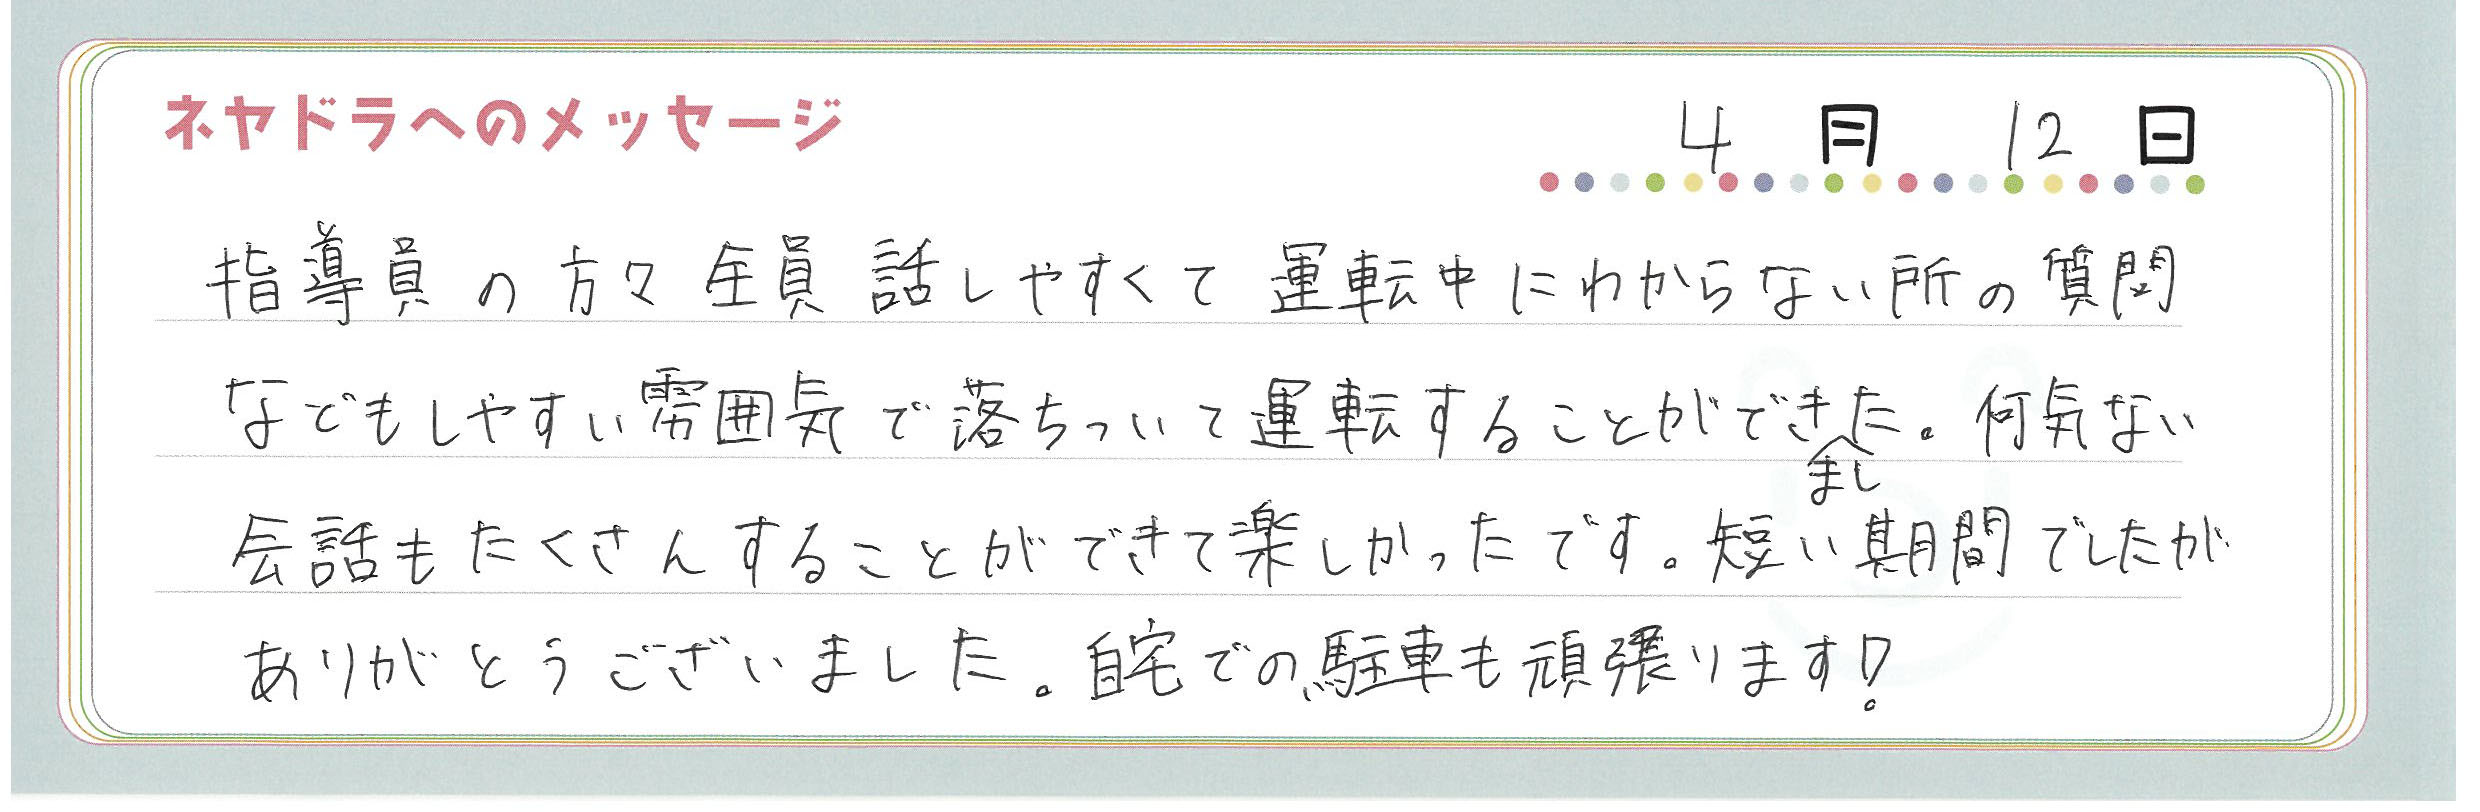 ネヤドラへのメッセージ 4月12日
指導員の方々全員話しやすくて運転中にわからない所の質問
などもしやすい雰囲気で落ちついて運転することができました。何気ない
会話もたくさんすることができて楽しかったです。短い期間でしたが
ありがとうございました。自宅での駐車も頑張ります!